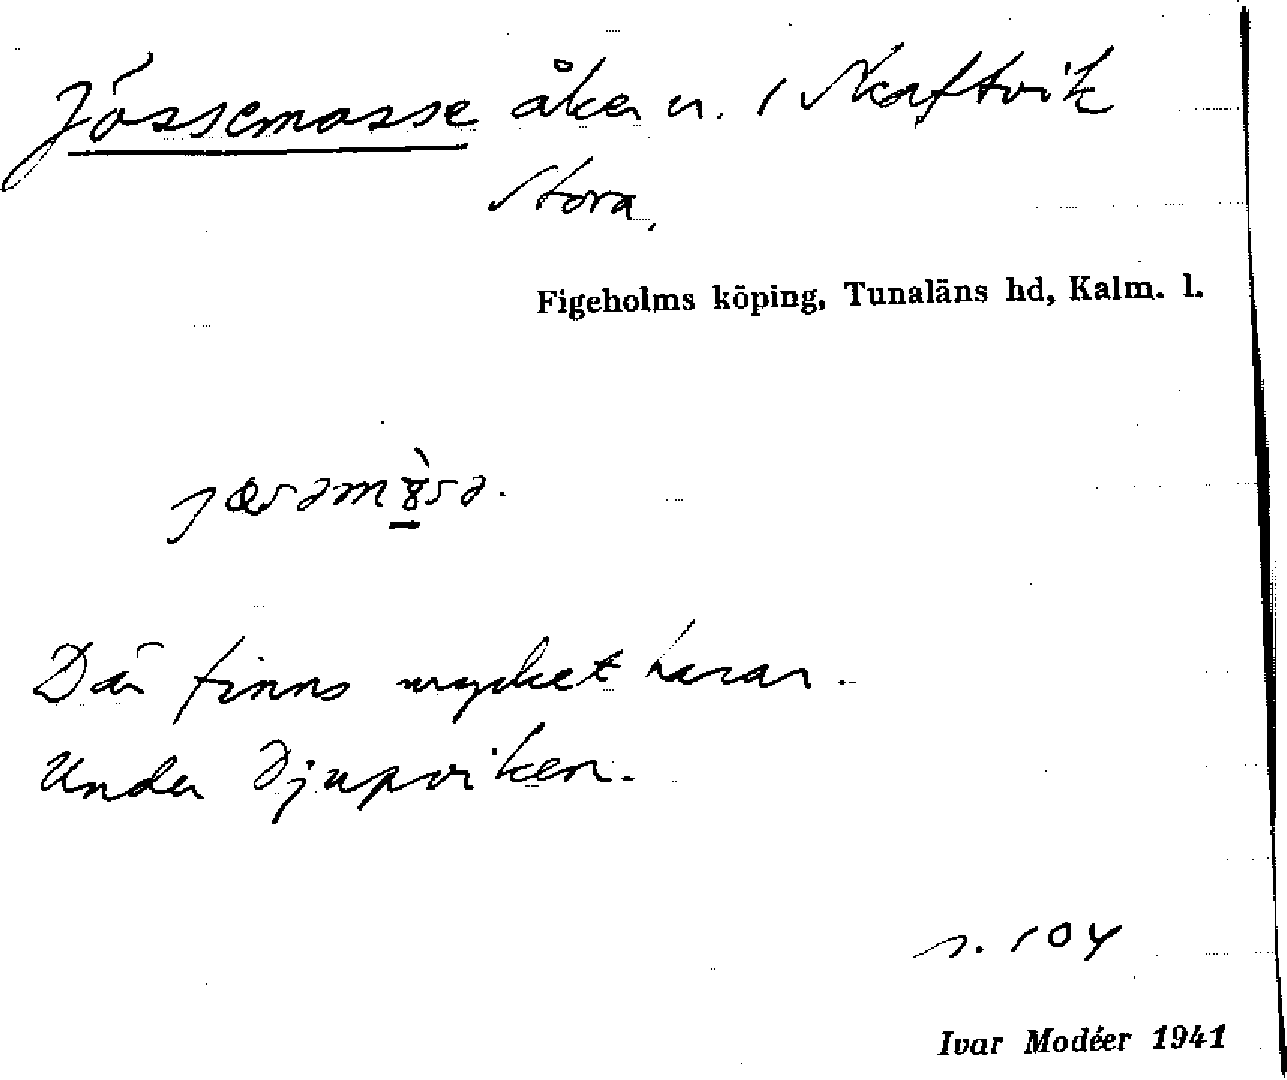 Jössemosse åker n. 1 Skaftvik
Stora.
Figeholms köping, Tunaläns hd, Kalm. l.
Där finns mycket harar.
Under Djupviken.
s. 104
Ivar Modéer 1941